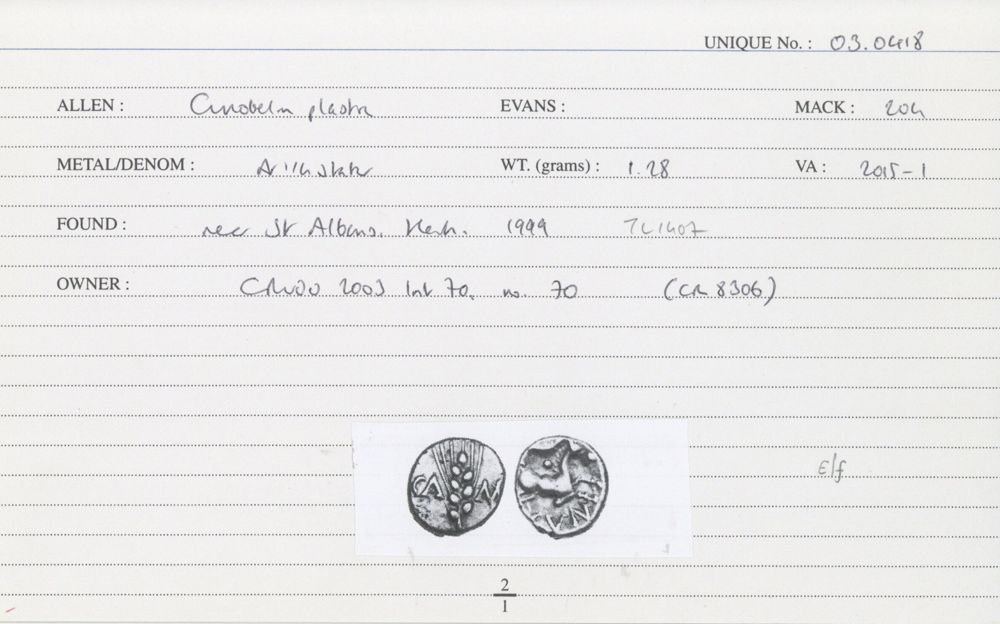 UNIQUE No. : 03.0418
ALLEN : Cunobelin plastic EVANS : MACK : 204
METAL/DENOM : AV 1/4 stater WT. (grams) : 1.28 VA : 2015-1
FOUND : near St Albans, Herts. 1999 TL1407
OWNER : 2003 list 70, no. 70 (CR 8306)
CA M
E/f
2
1